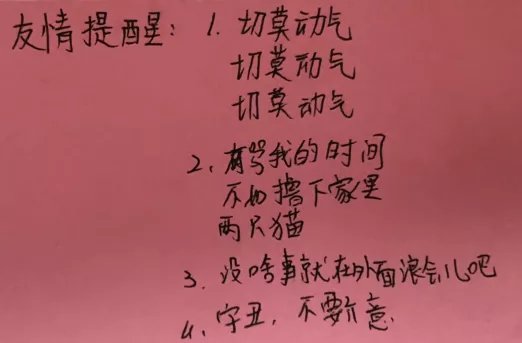 友情提醒：1. 切莫动气
切莫动气
切莫动气
2、有骂我的时间
不如撸下家里
两只猫
3. 没啥事就在外面浪会儿吧
4、字丑，不要介意.